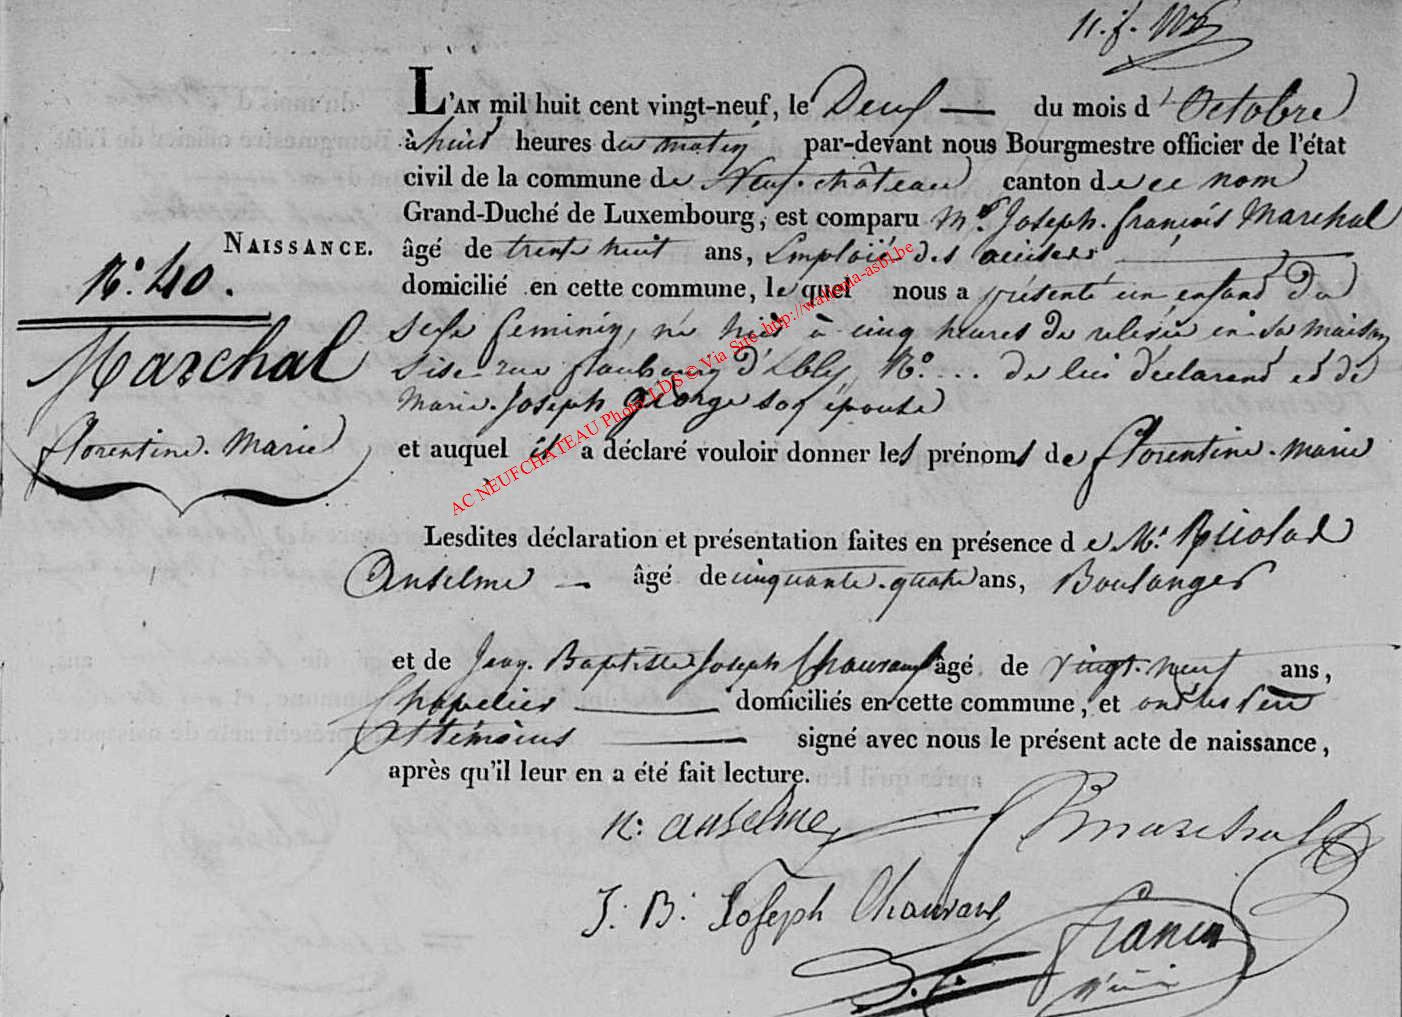 11. f.
L'AN mil huit cent vingt-neuf, le Deux du mois d'Octobre
à huit heures du matin par-devant nous Bourgmestre officier de l'état
civil de la commune de Neuf-château canton de ce nom
Grand-Duché de Luxembourg, est comparu Mr. Joseph-françois Marchal
NAISSANCE.
âgé de trente huit ans, Emploié des accises
N°. 40.
domicilié en cette commune, le quel nous a présenté un enfant du
sexe feminin, né hier à cinq heures de relevée en sa maison
Marchal
sise rue faubourg N°. ... de lui déclarant et de
Marie-Joseph George son épouse
Florentine-Marie
et auquel il a déclaré vouloir donner les prénoms de florentine-marie
Lesdites déclaration et présentation faites en présence de Mr. Nicolas
Anselme âgé de cinquante-quatre ans, Boulanger
et de Jean-Baptiste Joseph Chauvaux âgé de vingt-neuf ans,
Chapelier domiciliés en cette commune, et ont les Père
et témoins signé avec nous le présent acte de naissance,
après qu'il leur en a été fait lecture.
N: anselme
Marchal
J: B: Joseph Chauvaux
AC NEUFCHATEAU Photo LDS © Via Site http://wallonia-asbl.be